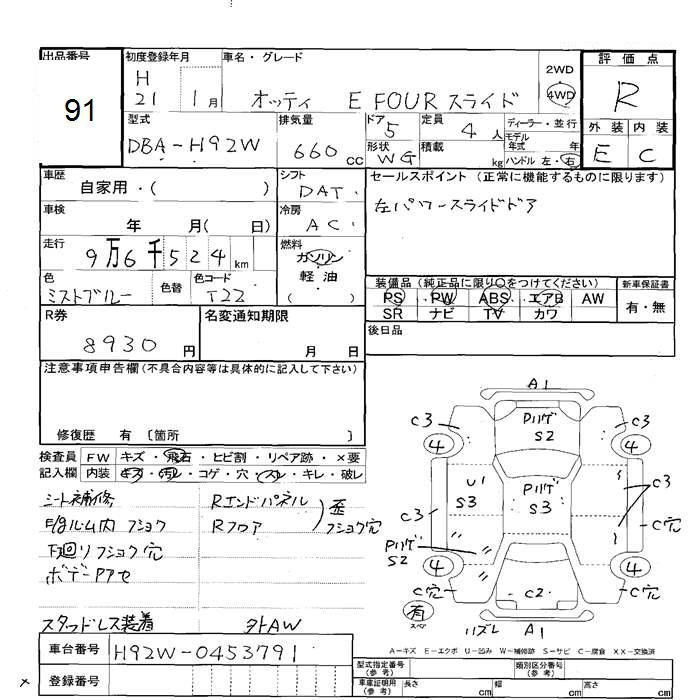 出品番号 91
初度登録年月 H 21 1月
車名・グレード オッティ E FOUR スライド
2WD 4WD
評価点 R
外装 内装
E C
型式 DBA-H92W
排気量 660 cc
ドア 5
形状 WG
定員 4 人
積載 kg
ディーラー・並行
モデル年式 年
ハンドル 左・右
車歴 自家用・( )
シフト DAT
セールスポイント (正常に機能するものに限ります)
左パワースライドドア
車検 年 月( 日)
冷房 AC
走行 9万6千524km
燃料 ガソリン・軽油 ( )
色 ミストブルー
色替
色コード T22
装備品 (純正品に限り○をつけてください)
PS PW ABS エアB AW
SR ナビ TV カワ
新車保証書 有・無
R券 8930 円
名変通知期限 月 日
後日品
注意事項申告欄 (不具合内容等は具体的に記入して下さい)
修復歴 有 〔箇所 〕
検査員記入欄
FW キズ・飛石・ヒビ割・リペア跡・×要
内装 キズ・汚れ・コゲ・穴・スレ・キレ・破レ
シート補修
ルーム内 フショク
下廻りフショク穴
ボデーPアセ
スタッドレス装着
Rエンドパネル
Rフロア
歪
フショク穴
外AW
A1
C3 PハゲS2 C3
4 4
U1
S3
PハゲS3
C3
C3 C穴
PハゲS2
4 4
C穴 C2 C穴
有 スペア
ハズレ A1
A-キズ E-エクボ U-凹み W-補修跡 S-サビ C-腐食 XX-交換済
車台番号 H92W-0453791
登録番号
型式指定番号(参考) 類別区分番号(参考)
車車証明用(参考) 長さ cm 幅 cm 高さ cm